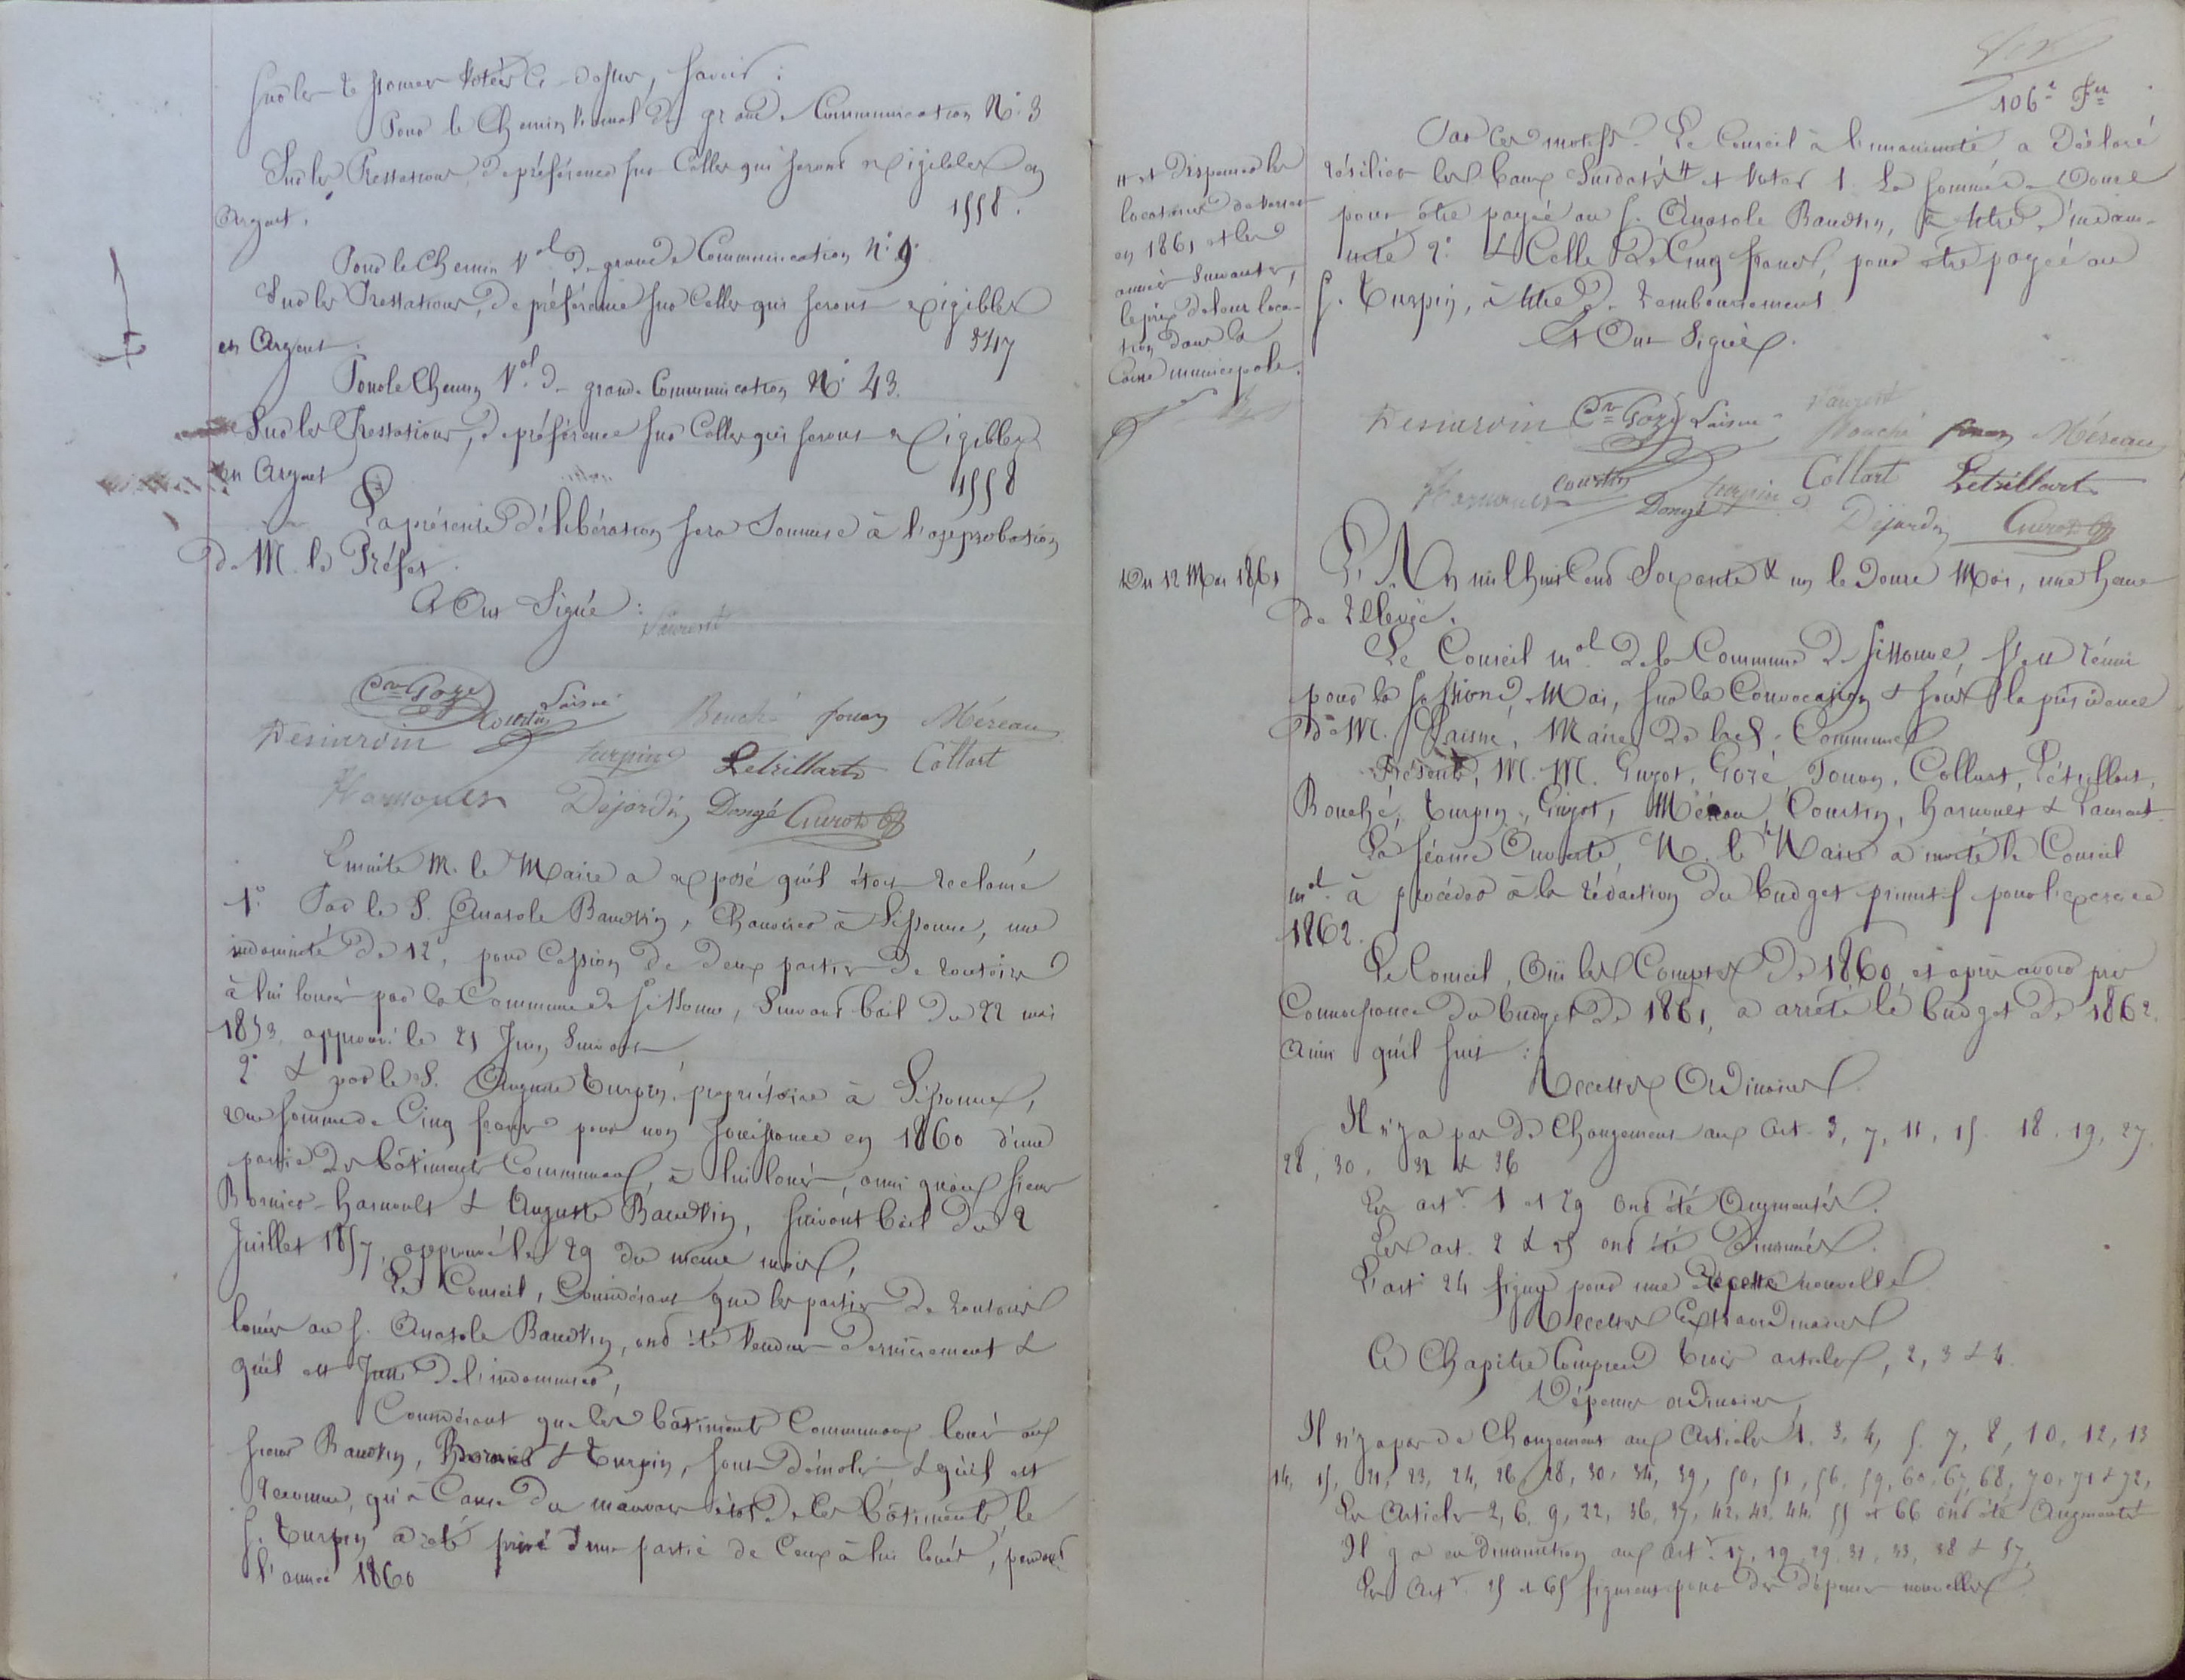 sur les ressources votées ci-dessus, savoir :
Pour le Chemin vicinal de grande Communication N° 3
Sur les Prestations, de préférence sur celles qui seront exigibles en
Argent. 1558.
Pour le Chemin Vol de grande Communication N° 9.
Sur les Prestations, de préférence sur celles qui seront exigibles
en Argent. 547
Pour le Chemin Vol de grande Communication N° 43.
Sur les Prestations, de préférence sur Celles qui seront exigibles
en Argent 1558
La présente délibération sera Soumise à l'approbation
de M. le Préfet.
Et Ont Signé :
Laurent
Gozé Laisné
Desjardin Courtin Bouché fouan Méreau
turpin Letrillart Collart
Harnoult Dejardin Dongé Guiot
Ensuite M. le Maire a exposé qu'il était réclamé
1° Par le S. Anatole Baudvin, Chanvrier à Sissonne, une
indemnité de 12f, pour Cession de deux parties de routoirs
à lui loués par la Commune de Sissonne, Suivant bail du 22 mai
1853, approuvé le 21 Juin Suivant
2° & par le S. Auguste Turpin, propriétaire à Sissonne,
une somme de Cinq francs pour non Jouissance en 1860 d'une
partie des bâtiments Communaux, à lui loués, ainsi qu'aux sieurs
Bornier-harnoult & Auguste Baudvin, suivant bail du 2
Juillet 1857, approuvé le 29 du même mois,
Le Conseil, Considérant que les parties de routoirs
loués au S. Anatole Baudvin, ont été Vendues dernièrement &
qu'il est Juste de l'indemniser,
Considérant que les bâtiments Communaux loués aux
sieurs Baudvin, Bornier & Turpin, sont démolis, & qu'il est
reconnu, qu'à Cause du mauvais état de ces bâtiments le
S. Turpin a été privé d'une partie de Ceux à lui loués, pendant
l'année 1860
106e Fet
Par ces motifs. Le Conseil à l'unanimité a Déclaré
résilier les baux Susdatés # et Voter 1° La somme de Douze
pour être payée au S. Anatole Baudvin, à titre d'indem-
nité 2° & Celle de Cinq francs, pour être payée au
S. Turpin, à titre de remboursement
Et Ont Signé.
# et Dispenser les
locataires de verser
en 1861 et les
années Suivantes,
le prix de leur loca-
tion dans la
Caisse municipale.
Desjardin Gozé Laisné Laurent
Bouché fouan Méreau
Harnoult Courtin Dongé turpin Collart Letrillart
Dejardin Guiot
Du 12 Mai 1861
L'An mil huit Cent Soixante & un le Douze Mai, une heure
de relevée.
Le Conseil mal de la Commune de Sissonne, s'est réuni
pour la session de Mai, sur la Convocation & sous la présidence
de M. Laisné, Maire de lad. Commune
Présents, M.M. Guyot, Gozé, Fouan, Collart, Létrillart,
Bouché, Turpin, Guyot, Méreau, Courtin, harnoult & Laurent
La séance Ouverte, M. le Maire a invité le Conseil
mal à procéder à la rédaction du budget primitif pour l'exercice
1862.
Le Conseil, Ouï les Comptes de 1860, et après avoir pris
Connaissance du budget de 1861, a arrêté le budget de 1862.
Ainsi qu'il suit :
Recettes Ordinaires.
Il n'y a pas de Changement aux Art. 3, 7, 11, 15. 18. 19, 27.
28, 30, 32 & 36
Les arts 1 et 29 ont été Augmentés.
Les art. 2 & 25 ont été Diminués.
L'art 24 figure pour une Recette nouvelle
Recettes Extraordinaires
Ce Chapitre Comprend trois articles, 2, 3 & 4.
Dépenses ordinaires
Il n'y a pas de Changement aux Articles 1. 3, 4, 5. 7, 8, 10, 12, 13
14, 15, 21, 23, 24, 26, 28, 30, 34, 39, 50, 51, 56, 59, 60, 67, 68, 70, 71 & 72,
Les Articles 2, 6, 9, 22, 36, 37, 42, 43, 44, 55 et 66 ont été Augmentés
Il y a eu Diminution aux Arts 17, 19, 29, 31, 33, 38 & 57,
Les Arts 25 et 65 figurent pour des dépenses nouvelles